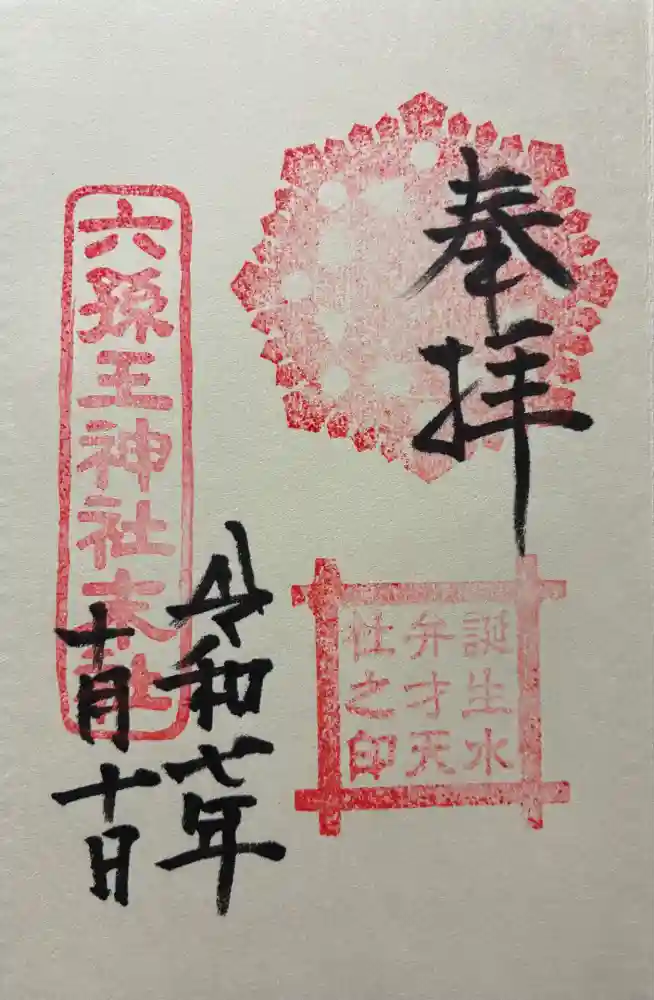 奉拝
誕生水
弁才天
社之印
令和七年
十月十日
六孫王神社末社